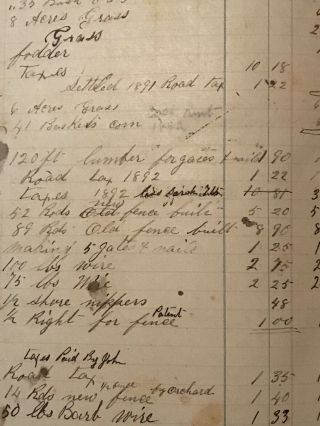 8 Acres Grass
Grass
fodder
taxes 10 18
Settled 1891 Road tax 1 22
6 Acres Grass
41 Baskets corn
120 ft lumber for gates & nails 1 90
Road tax 1892 1 22
taxes 1892 10 81
new
52 Rods Old fence built 5 20
89 Rds Old fence built 8 90
making 5 gates & nails 1 25
100 lbs wire 2 75
75 lbs Wire 2 25
1/2 shore nippers 48
Patent
1/2 Right for fence 1 00
Taxes Paid By John
Road tax 1 35
14 Rds new fence by orchard 1 40
50 lbs Barb wire 1 33